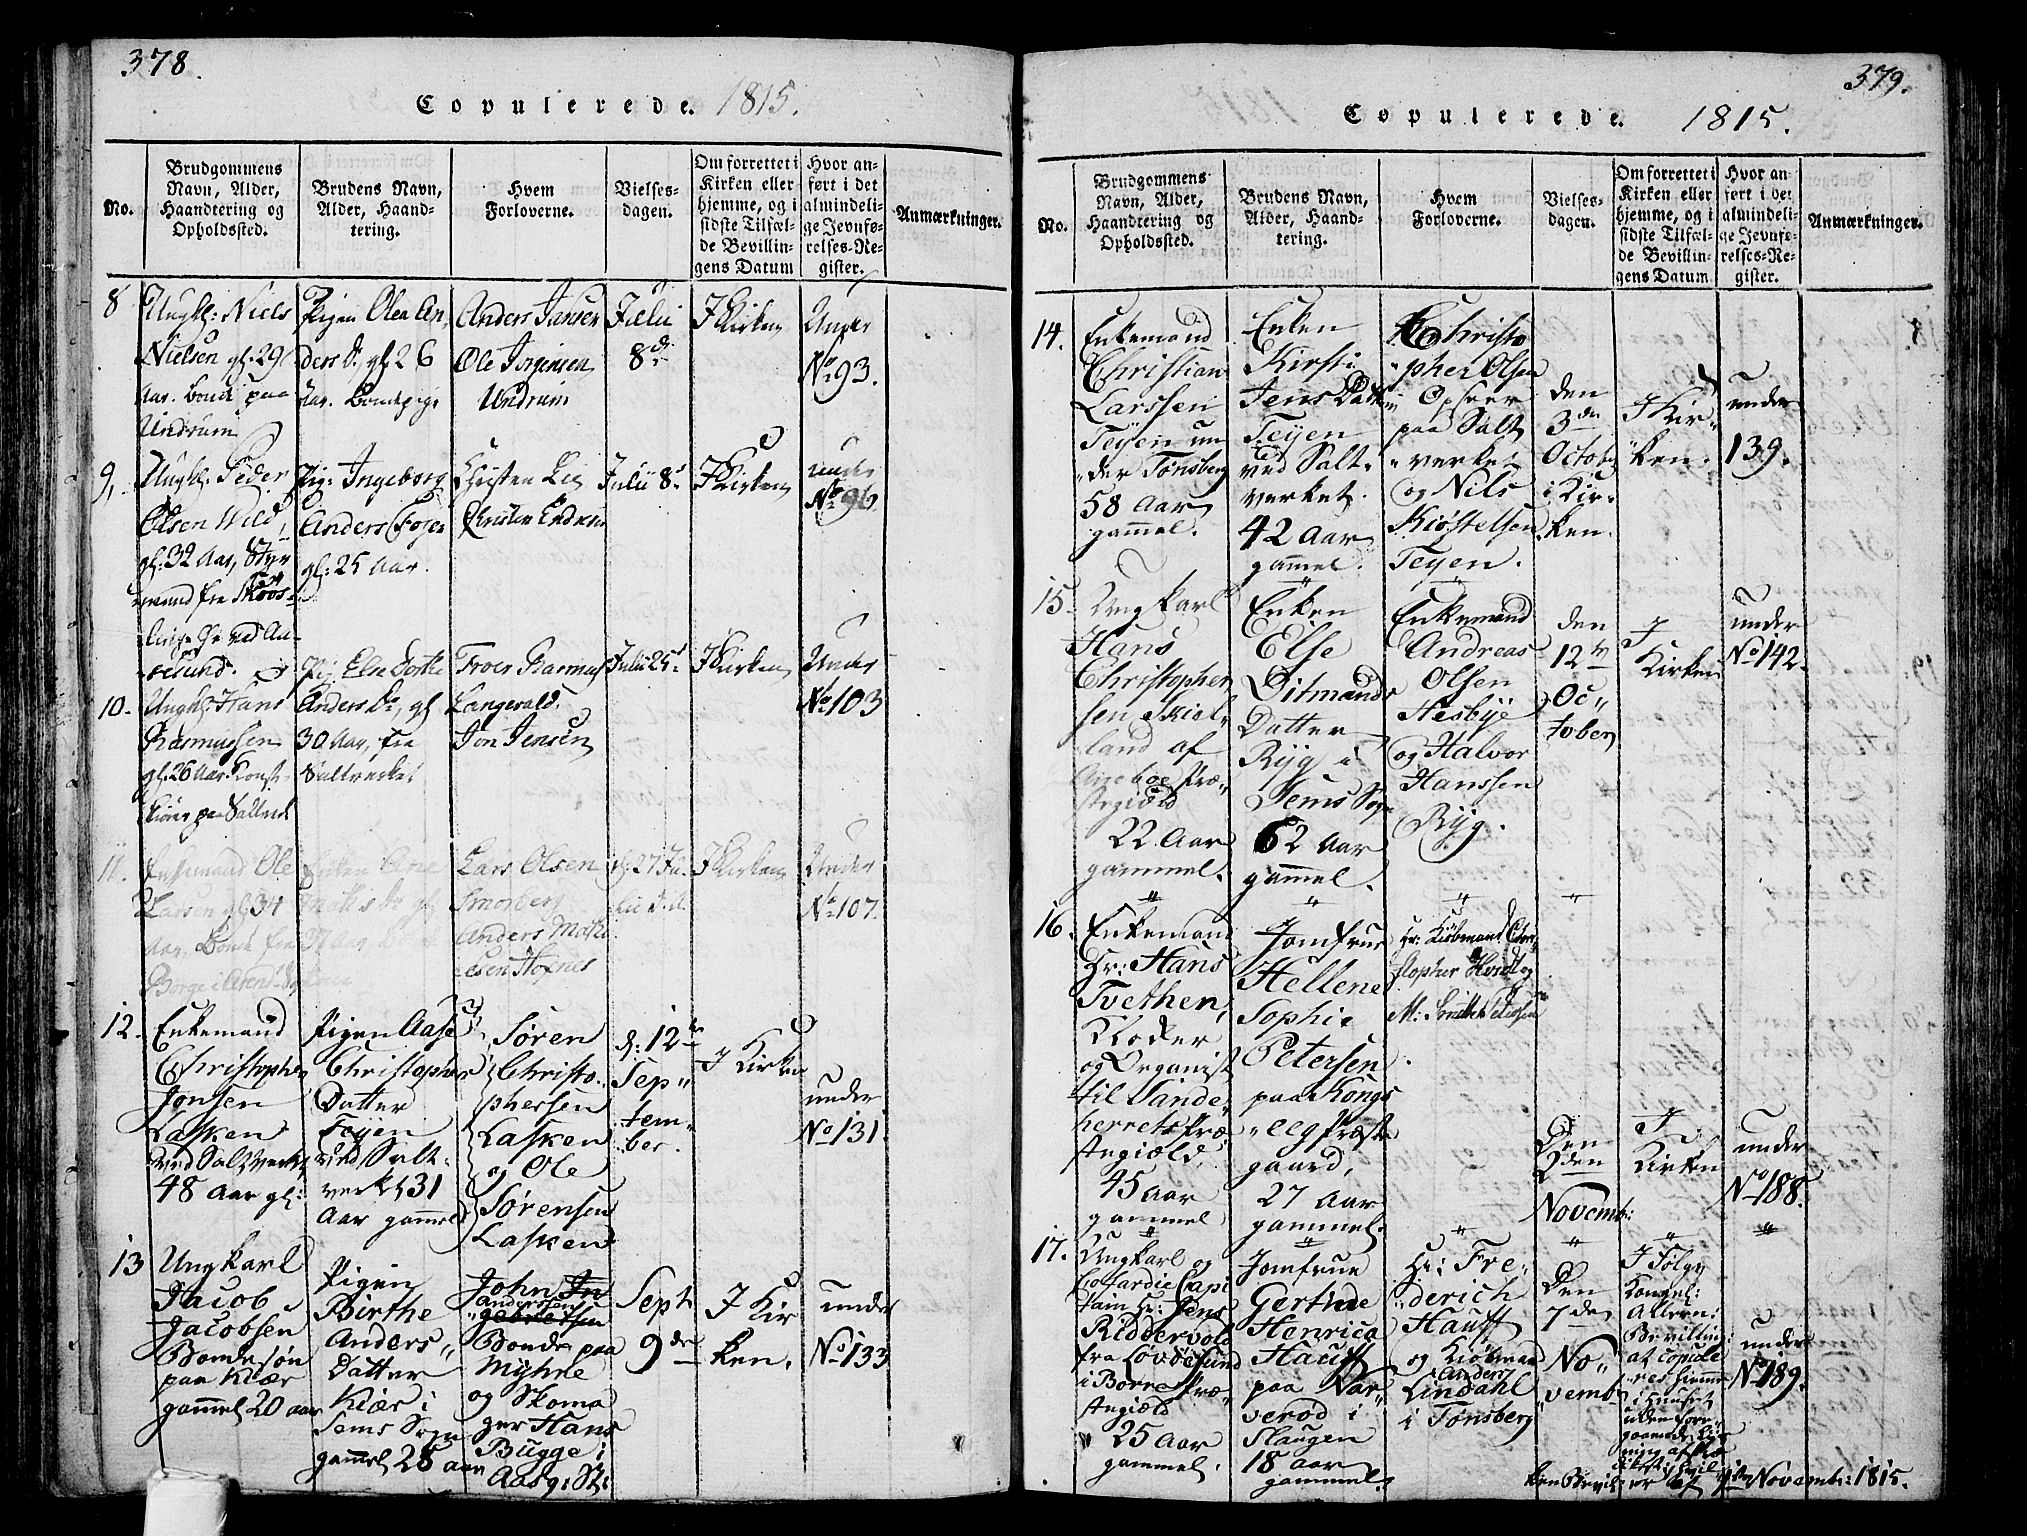 378.
Copulerede. 1815.
No.
Brudgommens
Navn, Alder,
Haandtering og
Opholdssted.
Brudens Navn,
Alder, Haand-
tering.
Hvem
Forloverne.
Vielses-
dagen.
Om forrettet i
Kirken eller
hjemme, og i
sidste Tilfæl-
de Bevillin-
gens Datum
Hvor an-
ført i det
almindeli-
ge Jevnfø-
relses-Re-
gister.
Anmærkninger.
8
Ungk: Niels
Nielsen gl: 29
Aar. Bonde paa
Undrum
Pigen Olea An-
ders D. gl 26
Aar. Bondepige
Anders Jansen
Ole Jørgensen
Undrum
Julii
8d
I Kirken
Under
No 93.
9.
Ungk. Peder
Olsen Wild,
gl: 32 Aar, Styr
mand fra
Pig: Ingeborg
Anders
gl: 25 Aar.
Christen Lie
Julii 8d
I Kirken
under
No 96
10.
Ungk. Hans
Rasmussen
gl. 26 Aar.
Pig. Else Dorthe
Anders Dr, gl
30 Aar, fra
Saltverket
Rasmus
Langevald.
Jon Jensen
Julii 25d
I Kirken
Under
No 103
11.
Enkemand Ole
Larsen gl 34
Aar, Bonde fra
Enken Ane
Lars Olsen
Smorberg
Anders
I Kirken
Under
No 107.
12.
Enkemand
Christopher
Jonsen
Lasken
ved Saltverket
48 Aar gl:
Pigen Aase
Christopher
Datter
Teyen
ved Salt-
verket 31
Aar gammel
Søren
Christo-
phersen
Lasken
og Ole
Sørensen
Lasken
d: 12te
Sep-
tem-
ber.
I Kirken
under
No 131.
13
Ungkarl
Jacob
Jacobsen
Bondesøn
paa Kiær
gammel 20 aar
Pigen
Birthe
Anders"
Datter
Kiær i
Sems Sogn
gammel 28 aar
John
Anderssen
Bonde paa
Myhre
og Skoma
ger Hans
Bugge i
Aasg: St:
Sept
9de
I Kir
ken.
under
No 133
379.
Copulerede. 1815.
No.
Brudgommens
Navn, Alder,
Haandtering og
Opholdssted.
Brudens Navn,
Alder, Haand-
tering.
Hvem
Forloverne.
Vielses-
dagen.
Om forrettet i
Kirken eller
hjemme, og i
sidste Tilfæl-
de Bevillin-
gens Datum.
Hvor an-
ført i det
almindeli-
ge Jevnfø-
relses-Re-
gister.
Anmærkninger.
14.
Enkemand
Christian
Larssen
Teyen un
"der Tønsberg
58 Aar
gammel.
Enken
Kirsti
Jens Datter
Teyen
ved Salt-
verket.
42 Aar
gammel.
Christo
"pher Olsen
Opseer
paa Salt
"verket
og Nils
Kiøstelsen
Teyen.
den
3de
October
i Kir-
ken.
I Kir"
ken.
under
139.
15.
Ungkarl
Hans
Christopher
sen Skiel-
land af
Præ-
stegiæld
22 Aar
gammel.
Enken
Else
Ditmands
Datter
Ryg i
Sems Sogn
62 Aar
gammel.
Enkemand
Andreas
Olsen
Hesbye
og Halvor
Hanssen
Ryg.
den
12te
Oc"
tober
I
Kirken
under
No 142.
16.
Enkemand
Hr: Hans
Tvethen,
Kloder
og Organist
til Sande-
herrets Præ
stegiæld,
45 Aar
gammel
Jomfrue
Hellene
Sophie
Petersen
paa Kongs
"eeg Præste
gaard,
27 Aar
gammel.
Hr: Kiøbmand Chri
stopher Hvidt og
M: Smith Petersen
Den
2den
Novemb:
I
Kirken
under
No 188.
17.
Ungkarl og
Cofardie Capi
tain Hr: Jens
Riddervold
fra Løvøesund
i Borre Præ-
stegiæld
25 Aar
gammel.
Jomfrue
Gerthrue
Henrica
Hauff
paa Var"
verød i
Slaugen
18 aar
gammel.
Hr: Fre"
"derich
Hauff
og Kiøbmand
Anders
Lindahl
i Tønsberg
Den
7de
No"
vemb:
I Følge
Kongel:
Allern:
Bevilling
at copule
res hiemme
i Huuset
uden fore"
gaaende
af
Novemb: 1815.
under
No 189.